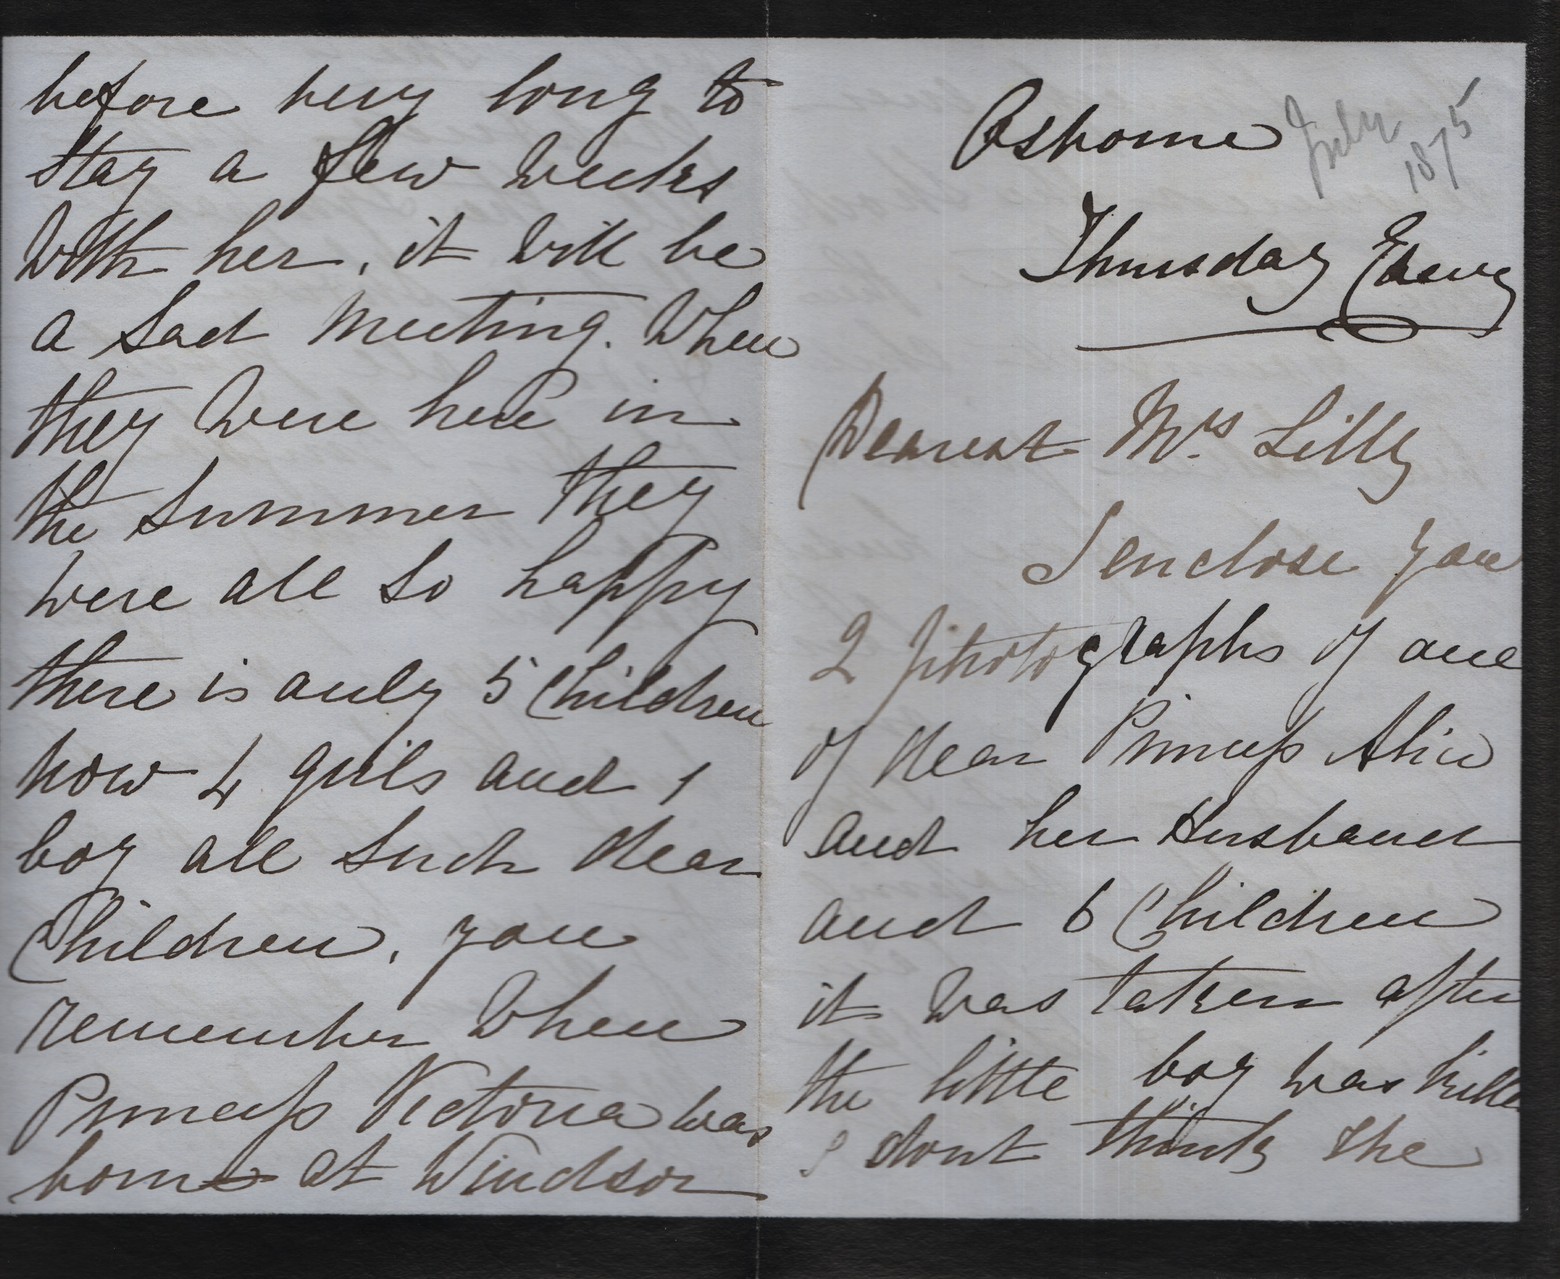 Osborne July
1875
Thursday Eveng
Dearest Mrs. Lilly
I enclose you
2 photographs of one
of dear Princess Alice
and her Husband
and 6 Children
it was taken after
the little boy was kille
I dont think the
before very long to
stay a few weeks
with her, it will be
a sad meeting. When
they were here in
the summer they
were all so happy
there is only 5 Children
now 4 girls and 1
boy all such dear
Children, you
remember when
Princess Victoria was
born at Windsor